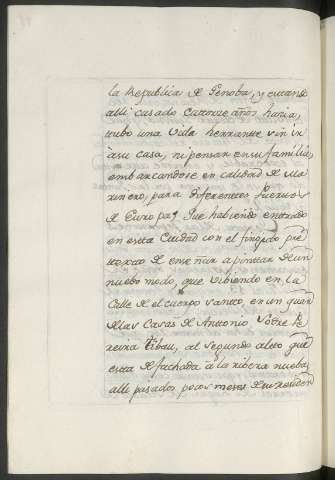 la Republica de Genoba, y estando
alli casado catorze años havia,
tubo una vida herrante sin ir
a su casa, ni pensar en su familia,
embarcandose en calidad de Ma
rinero, para diferentes Puertos
de Europa; Que habiendo entrado
en esta Ciudad con el fingido pre
texto de enseñar a pintar de un
nuebo modo, que vibiendo en la
Calle de el cuerpo santto, en un quar
de las Casas de Antonio
xeira, al segundo alto que
esta de fachada a la ribera nueba,
alli pasados pocos meses de su residen